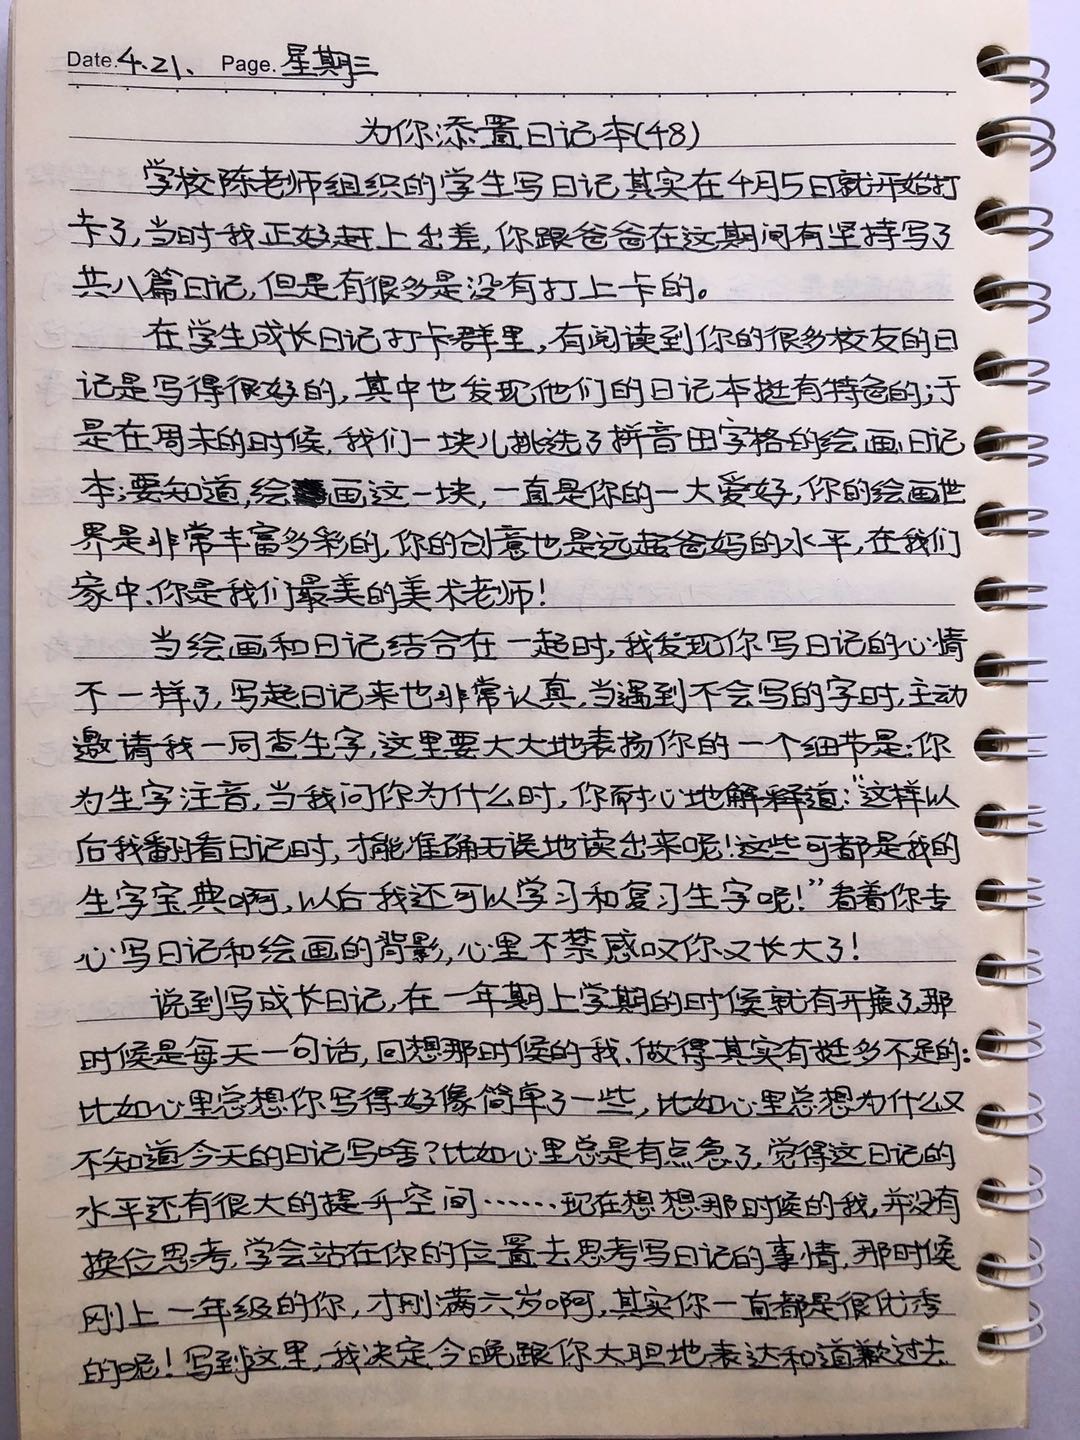 Date.4.21、 Page.星期三
为你添置日记本(48)
学校陈老师组织的学生写日记其实在4月5日就开始打
卡了,当时我正好赶上出差,你跟爸爸在这期间有坚持写了
共八篇日记,但是有很多是没有打上卡的。
在学生成长日记打卡群里,有阅读到你的很多校友的日
记是写得很好的,其中也发现他们的日记本挺有特色的;于
是在周末的时候,我们一块儿挑选了拼音田字格的绘画日记
本;要知道,绘画这一块,一直是你的一大爱好,你的绘画世
界是非常丰富多彩的,你的创意也是远超爸妈的水平,在我们
家中,你是我们最美的美术老师!
当绘画和日记结合在一起时,我发现你写日记的心情
不一样了,写起日记来也非常认真,当遇到不会写的字时,主动
邀请我一同查生字,这里要大大地表扬你的一个细节是:你
为生字注音,当我问你为什么时,你耐心地解释道:“这样以
后我翻看日记时,才能准确无误地读出来呢!这些可都是我的
生字宝典啊,以后我还可以学习和复习生字呢!”看着你专
心写日记和绘画的背影,心里不禁感叹你又长大了!
说到写成长日记,在一年期上学期的时候就有开展了,那
时候是每天一句话,回想那时候的我,做得其实有挺多不足的:
比如心里总想你写得好像简单了一些,比如心里总想为什么又
不知道今天的日记写啥?比如心里总是有点急了,觉得这日记的
水平还有很大的提升空间……现在想想那时候的我,并没有
换位思考,学会站在你的位置去思考写日记的事情,那时候
刚上一年级的你,才刚满六岁啊,其实你一直都是很优秀
的呢!写到这里,我决定今晚跟你大胆地表达和道歉过去